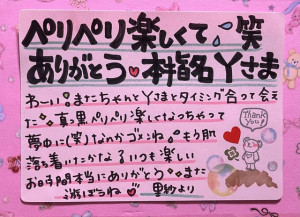 ペリペリ楽しくて笑
ありがとう 指名Yさま
わーい!またちゃんとYさまとタイミング合って会え
た 真里ペリペリ楽しくなっちゃって
夢中に(笑)なんかゴメンね もう肌
落ち着いたかなぁ いつも楽しい
お時間本当にありがとう また
遊ぼうね 里紗より
Thank you!